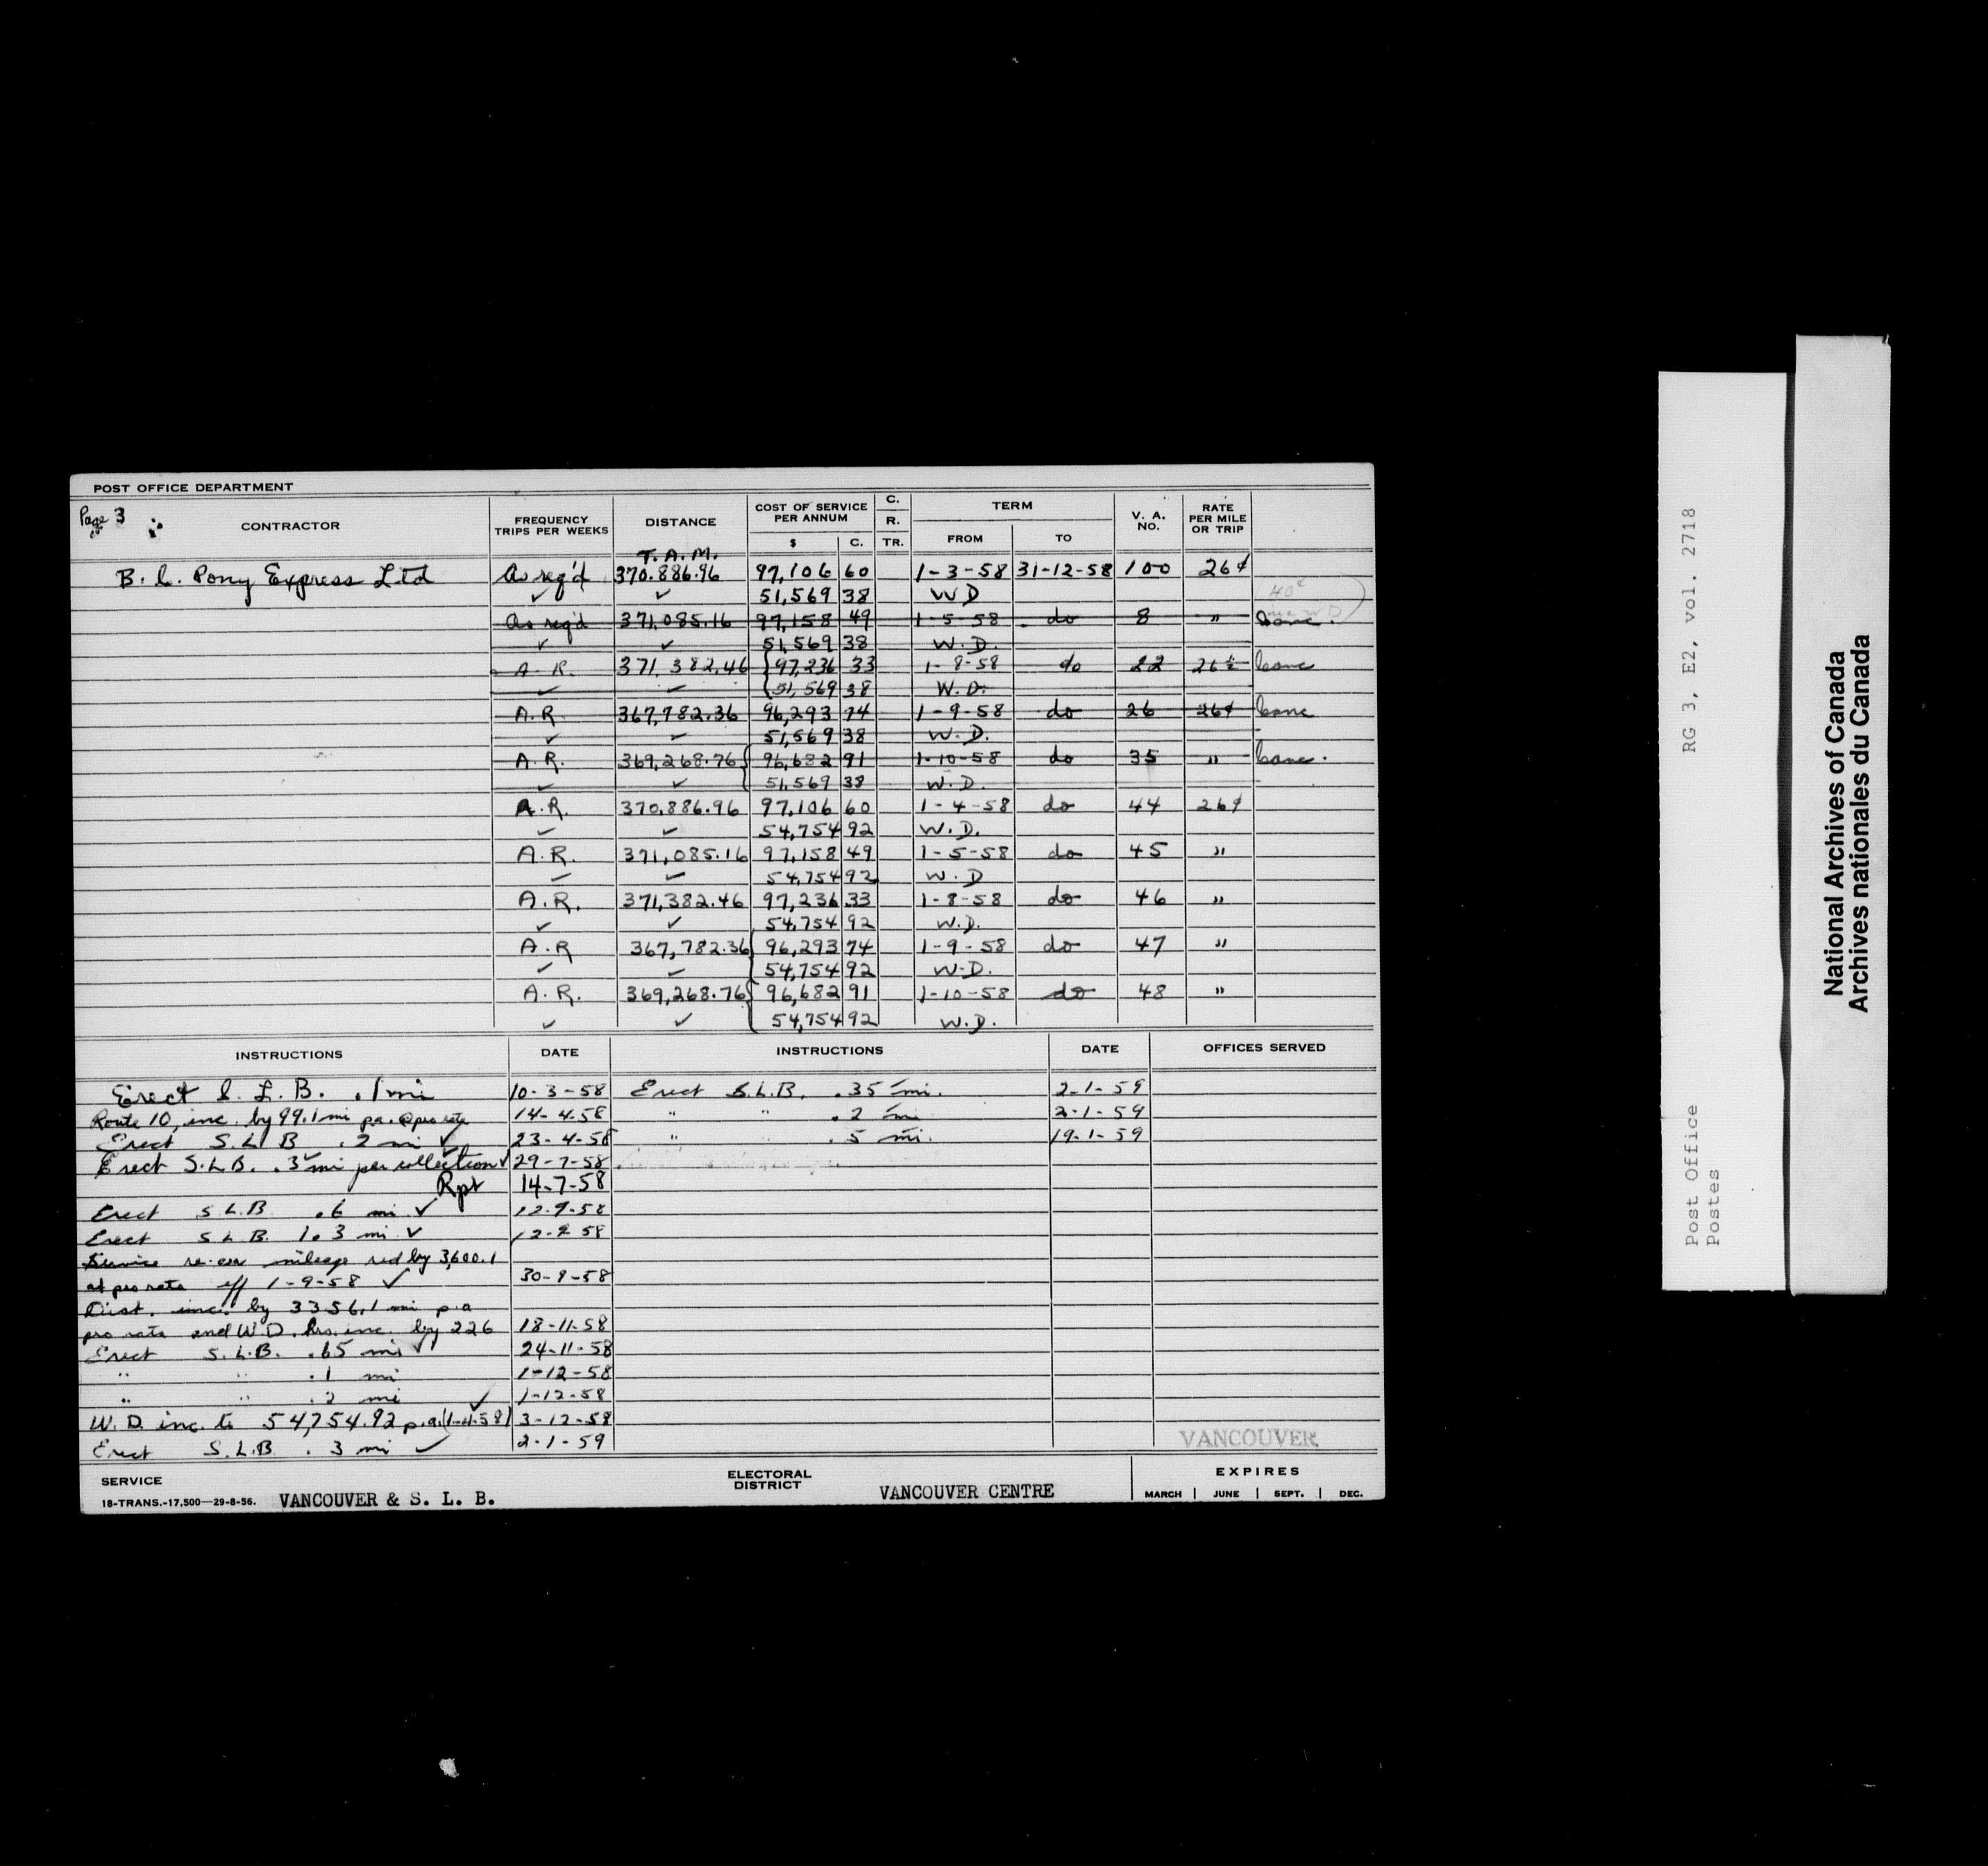 POST OFFICE DEPARTMENT
Page 3
CONTRACTOR FREQUENCY TRIPS PER WEEKS DISTANCE COST OF SERVICE PER ANNUM $ C. C. R. TR. TERM FROM TO V. A. NO. RATE PER MILE OR TRIP
T.A.M.
B. C. Pony Express Ltd As req'd 370.886.96 97,106 60 1-3-58 31-12-58 100 26¢
✓ ✓ 51,569 38 W D 40¢
As req'd 371,085.16 97,158 49 1-5-58 do 8 " Canc.
✓ ✓ 51,569 38 W.D.
A.R. 371,382.46 97,236 33 1-8-58 do 22 26¢ Canc
✓ ✓ 51,569 38 W.D.
A.R. 367,782.36 96,293 74 1-9-58 do 26 26¢ Canc
✓ ✓ 51,569 38 W.D.
A.R. 369,268.76 96,682 91 1-10-58 do 35 " Canc.
✓ ✓ 51,569 38 W.D.
A.R. 370,886.96 97,106 60 1-4-58 do 44 26¢
✓ ✓ 54,754 92 W.D.
A.R. 371,085.16 97,158 49 1-5-58 do 45 "
✓ ✓ 54,754 92 W.D
A.R. 371,382.46 97,236 33 1-8-58 do 46 "
✓ ✓ 54,754 92 W.D.
A.R 367,782.36 96,293 74 1-9-58 do 47 "
✓ ✓ 54,754 92 W.D.
A.R. 369,268.76 96,682 91 1-10-58 do 48 "
✓ ✓ 54,754 92 W.D.
INSTRUCTIONS DATE INSTRUCTIONS DATE OFFICES SERVED
Erect S.L.B. .1 mi 10-3-58 Erect S.L.B. .35 mi. 2-1-59
Route 10, inc. by 99.1 mi pa. @ pro rate 14-4-58 " " .2 mi 2-1-59
Erect S.L.B .2 mi ✓ 23-4-58 " .5 mi. 19-1-59
Erect S.L.B. .3 mi per collection ✓ 29-7-58
Rpt 14-7-58
Erect S.L.B .6 mi ✓ 12-9-58
Erect S.L.B. 1.3 mi ✓ 12-9-58
Service re-arr mileage red by 3,600.1
at pro rata eff 1-9-58 ✓ 30-9-58
Dist. inc. by 3356.1 mi p.a
pro rata and W.D. hrs. inc. by 226 18-11-58
Erect S.L.B. .65 mi ✓ 24-11-58
" " .1 mi 1-12-58
" " .2 mi ✓ 1-12-58
W.D. inc. to 54,754.92 p.a. (1-4-58) 3-12-58
Erect S.L.B .3 mi ✓ 2-1-59
VANCOUVER
SERVICE
18-TRANS.-17,500—29-8-56. VANCOUVER & S. L. B.
ELECTORAL DISTRICT VANCOUVER CENTRE
EXPIRES
MARCH | JUNE | SEPT. | DEC.
RG 3, E2, vol. 2718
Post Office
Postes
National Archives of Canada
Archives nationales du Canada